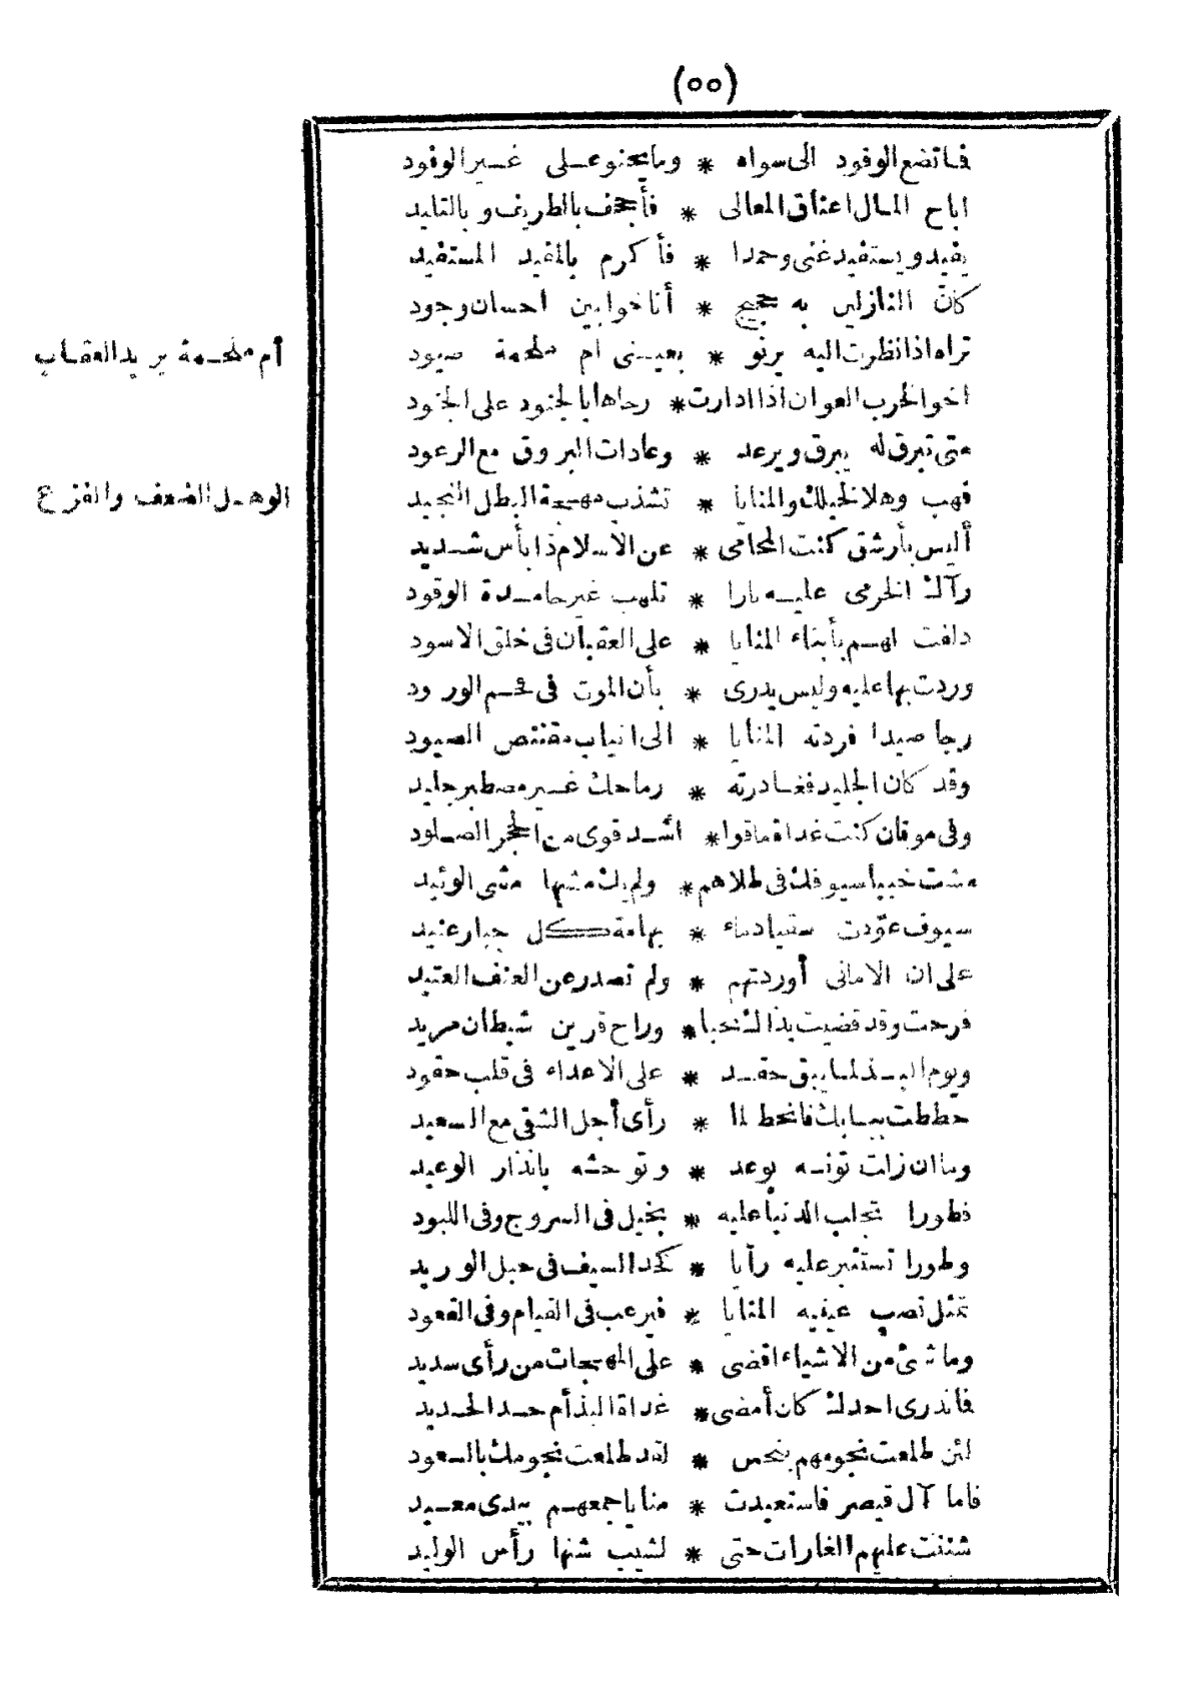 (٥٥)
فما تضع الوفود الى سواه * وما يحنو على غير الوفود
اباح المال اعناق المعالى * فأجحف بالطريف وبالتليد
يفيد ويستفيد غنى وحمدا * فأكرم بالمفيد المستفيد
كانّ النازلين به حجيج * أناخوا بين احسان وجود
تراه اذا نظرت اليه يرنو * بعينى ام ملحمة صيود
أم ملحمة يريد العقاب
اخو الحرب العوان اذا ادارت * رحاها بالجنود على الجنود
متى تبرق له يبرق ويرعد * وعادات البروق مع الرعود
فهب وهلا لخيلك والمنايا * تشذب مهجة البطل النجيد
الوهل الضعف والفزع
أليس بأرشق كنت المحامى * عن الاسلام ذا بأس شديد
رآك الخرمى عليه نارا * تلهب غير خامدة الوقود
دلفت لهم بأبناء المنايا * على العقبان فى خلق الاسود
وردت بها عليه وليس يدرى * بأن الموت فى الورود
رجا صيدا فردته المنايا * الى انياب مقتنص الصيود
وقد كان الجليد فغادرته * رماحك غير مصطبر جليد
وفى موقان كنت غداة ماقوا * اشد قوى من الحجر الصلود
مشت خببا سيوفك فى طلاهم * ولم يك مشيها مشى الوئيد
سيوف عوّدت سقيا دماء * بهامة كل جبار عنيد
على ان الامانى أوردتهم * ولم تصدر عن العنف العتيد
فرحت وقد قضيت بذاك نحبا * وراح قرين شيطان مريد
ويوم البذ لما يبق حقد * على الاعداء فى قلب حقود
حططت ببابك فانحط لما * رأى أجل الشقى مع السعيد
وما ان زلت تؤنسه بوعد * وتوحشه بانذار الوعيد
فطورا تجلب الدنيا عليه * بخيل فى السروج وفى اللبود
وطورا تستثير عليه رأيا * كحد السيف فى حبل الوريد
تمثل نصب عينيه المنايا * فيرعب فى القيام وفى القعود
وما شئ من الاشياء اقضى * على المهجات من رأى سديد
فما ندرى احدك كان أمضى * غداة البذ أم حد الحديد
لئن طلعت نجومهم بنحس * لقد طلعت نجومك بالسعود
فاما آل قيصر فاستعيدت * منايا جمعهم بيدى معيد
شننت عليهم الغارات حتى * لشيب شنها رأس الوليد